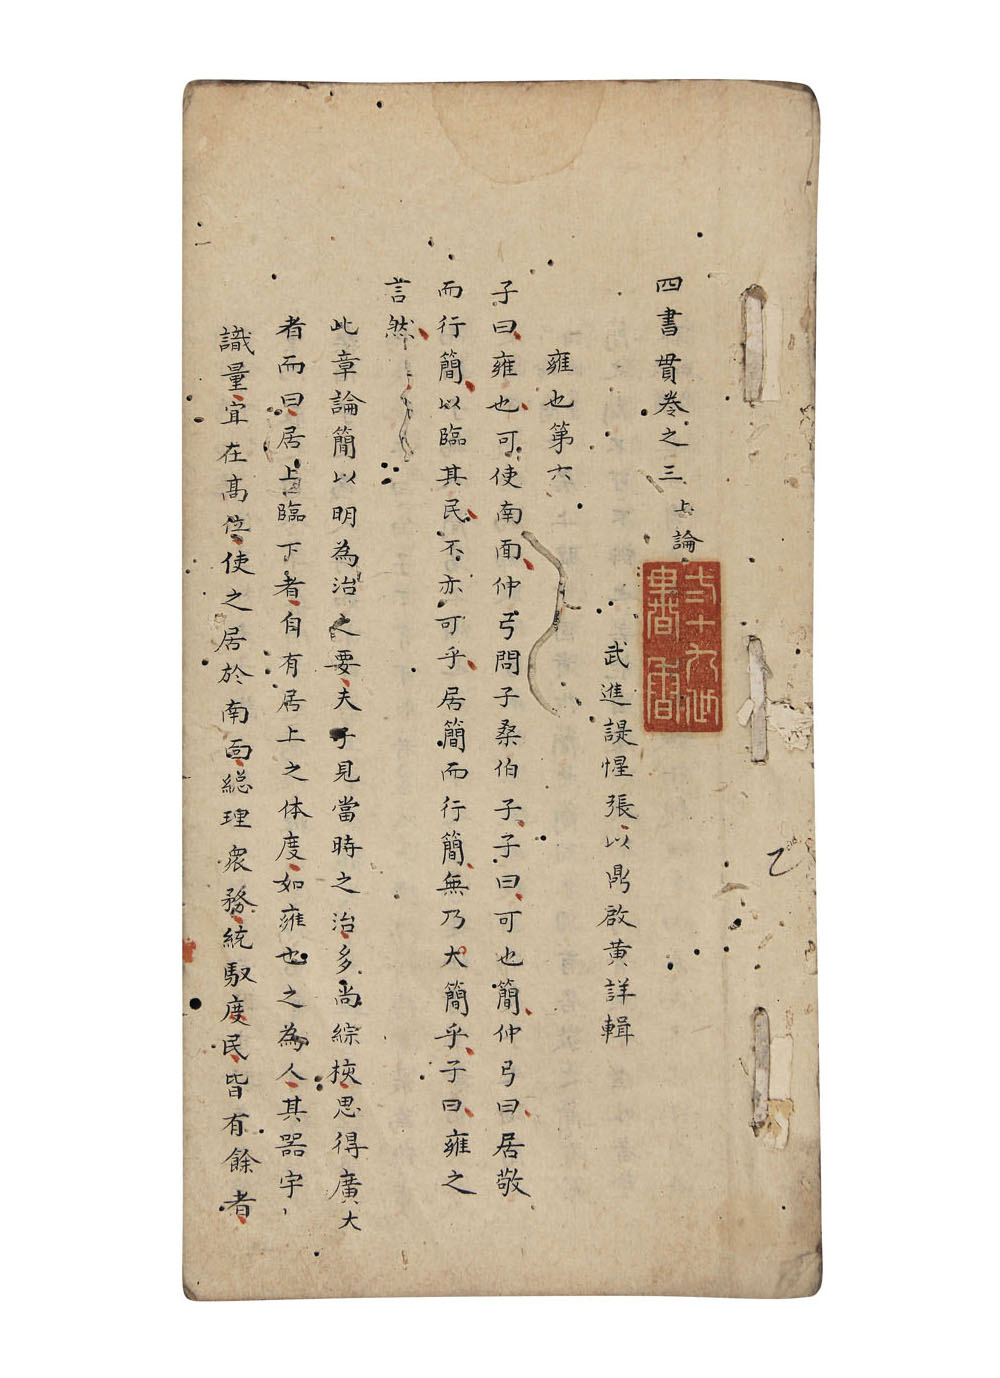 四書貫卷之三 上論
弍十九世書香
武進諟惺張以鼎啟黄詳輯
雍也第六
子曰雍也可使南面仲弓問子桑伯子子曰可也簡仲弓曰居敬
而行簡以臨其民不亦可乎居簡而行簡無乃大簡乎子曰雍之
言然
此章論簡以明為治之要夫子見當時之治多尚綜核思得廣大
者而曰居上臨下者自有居上之体度如雍也之為人其器宇
識量宜在高位使之居於南面総理衆務統馭度民皆有餘者